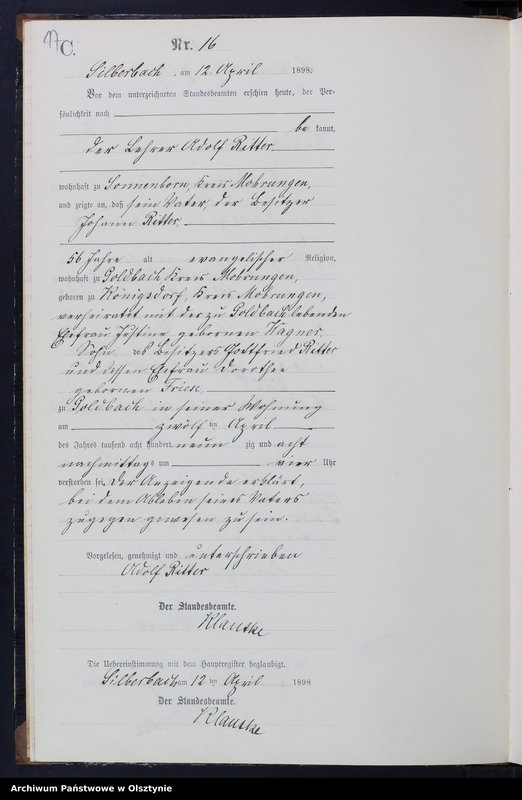 C.
Nr. 16
Silberbach, am 12. April 1898.
Vor dem unterzeichneten Standesbeamten erschien heute, der Per-
sönlichkeit nach
be kannt,
der Lehrer Adolf Ritter
wohnhaft zu Sonnenborn, Kreis Mohrungen,
und zeigte an, daß sein Vater, der Besitzer
Johann Ritter,
56 Jahre alt evangelischer Religion,
wohnhaft zu Goldbach Kreis Mohrungen,
geboren zu Königsdorf, Kreis Mohrungen,
verheiratet mit der zu Goldbach lebenden
Ehefrau Justine gebornen Wagner
Sohn des Besitzers Gottfried Ritter
und dessen Ehefrau Dorothee
gebornen Friese
zu Goldbach in seiner Wohnung
am zwölf ten April
des Jahres tausend acht hundert neun zig und acht
nachmittags um vier Uhr
verstorben sei. Der Anzeigende erklärt,
bei dem Ableben seines Vaters
zugegen gewesen zu sein.
Vorgelesen, genehmigt und unterschrieben
Adolf Ritter
Der Standesbeamte.
Klautke
Die Uebereinstimmung mit dem Hauptregister beglaubigt.
Silberbach am 12 ten April 1898
Der Standesbeamte.
Klautke
Archiwum Państwowe w Olsztynie